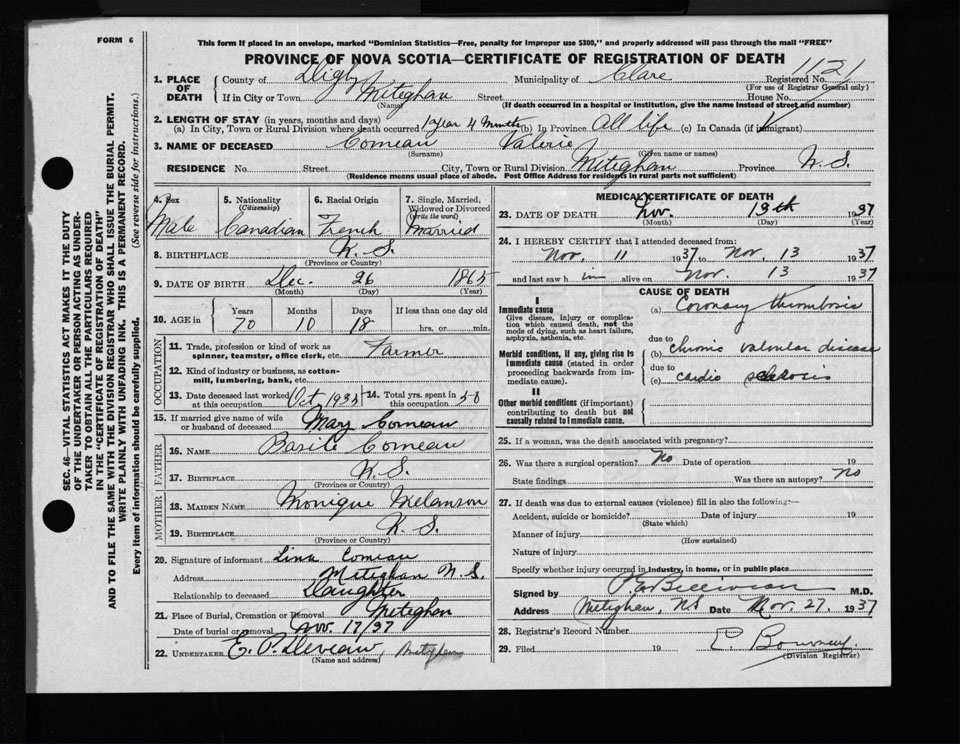 FORM 6
This form if placed in an envelope, marked "Dominion Statistics—Free, penalty for improper use $300," and properly addressed will pass through the mail "FREE"
PROVINCE OF NOVA SCOTIA—CERTIFICATE OF REGISTRATION OF DEATH
1. PLACE OF DEATH
County of Digby Municipality of Clare Registered No. 1121
(For use of Registrar General only)
If in City or Town Meteghan Street House No.
(Name) (If death occurred in a hospital or institution, give the name instead of street and number)
2. LENGTH OF STAY (in years, months and days)
(a) In City, Town or Rural Division where death occurred 1 year 4 months (b) In Province All life (c) In Canada (if immigrant)
3. NAME OF DECEASED Comeau Valerie
(Surname) (Given name or names)
RESIDENCE No. Street City, Town or Rural Division Meteghan Province N.S.
(Residence means usual place of abode. Post Office Address for residents in rural parts not sufficient)
4. Sex
Male
5. Nationality
(Citizenship)
Canadian
6. Racial Origin
French
7. Single, Married, Widowed or Divorced
(write the word)
Married
8. BIRTHPLACE N.S.
(Province or Country)
9. DATE OF BIRTH Dec. 26 1865
(Month) (Day) (Year)
10. AGE in
Years Months Days If less than one day old
70 10 18 hrs. or min.
OCCUPATION
11. Trade, profession or kind of work as spinner, teamster, office clerk, etc. Farmer
12. Kind of industry or business, as cotton-mill, lumbering, bank, etc.
13. Date deceased last worked at this occupation Oct 1935 14. Total yrs. spent in this occupation 50
15. If married give name of wife or husband of deceased Mary Comeau
FATHER
16. NAME Basile Comeau
17. BIRTHPLACE N.S.
(Province or Country)
MOTHER
18. MAIDEN NAME Monique Melanson
19. BIRTHPLACE N.S.
(Province or Country)
20. Signature of informant Lina Comeau
Address Meteghan N.S.
Relationship to deceased Daughter
21. Place of Burial, Cremation or Removal Meteghan
Date of burial or removal Nov. 17/37
22. UNDERTAKER E. P. Deveau, Meteghan
(Name and address)
MEDICAL CERTIFICATE OF DEATH
23. DATE OF DEATH Nov. 13th 1937
(Month) (Day) (Year)
24. I HEREBY CERTIFY that I attended deceased from:
Nov. 11 1937 to Nov. 13 1937
and last saw h im alive on Nov. 13 1937
CAUSE OF DEATH
I
Immediate cause
Give disease, injury or complication which caused death, not the mode of dying, such as heart failure, asphyxia, asthenia, etc.
(a) Coronary thrombosis
due to
Morbid conditions, if any, giving rise to immediate cause (stated in order proceeding backwards from immediate cause).
(b) chronic valvular disease
due to
(c) cardio sclerosis
II
Other morbid conditions (if important) contributing to death but not causally related to immediate cause.
25. If a woman, was the death associated with pregnancy?
26. Was there a surgical operation? No Date of operation 19
State findings Was there an autopsy? No
27. If death was due to external causes (violence) fill in also the following:—
Accident, suicide or homicide? Date of injury 19
(State which)
Manner of injury
(How sustained)
Nature of injury
Specify whether injury occurred in industry, in home, or in public place
Signed by Belliveau M.D.
Address Meteghan, NS Date Nov. 27, 1937
28. Registrar's Record Number
29. Filed 19
(Division Registrar)
SEC. 46—VITAL STATISTICS ACT MAKES IT THE DUTY
OF THE UNDERTAKER OR PERSON ACTING AS UNDER-
TAKER TO OBTAIN ALL THE PARTICULARS REQUIRED
IN THE "CERTIFICATE OF REGISTRATION OF DEATH"
AND TO FILE THE SAME WITH THE DIVISION REGISTRAR WHO SHALL ISSUE THE BURIAL PERMIT.
WRITE PLAINLY WITH UNFADING INK. THIS IS A PERMANENT RECORD.
Every item of information should be carefully supplied. (See reverse side for instructions.)